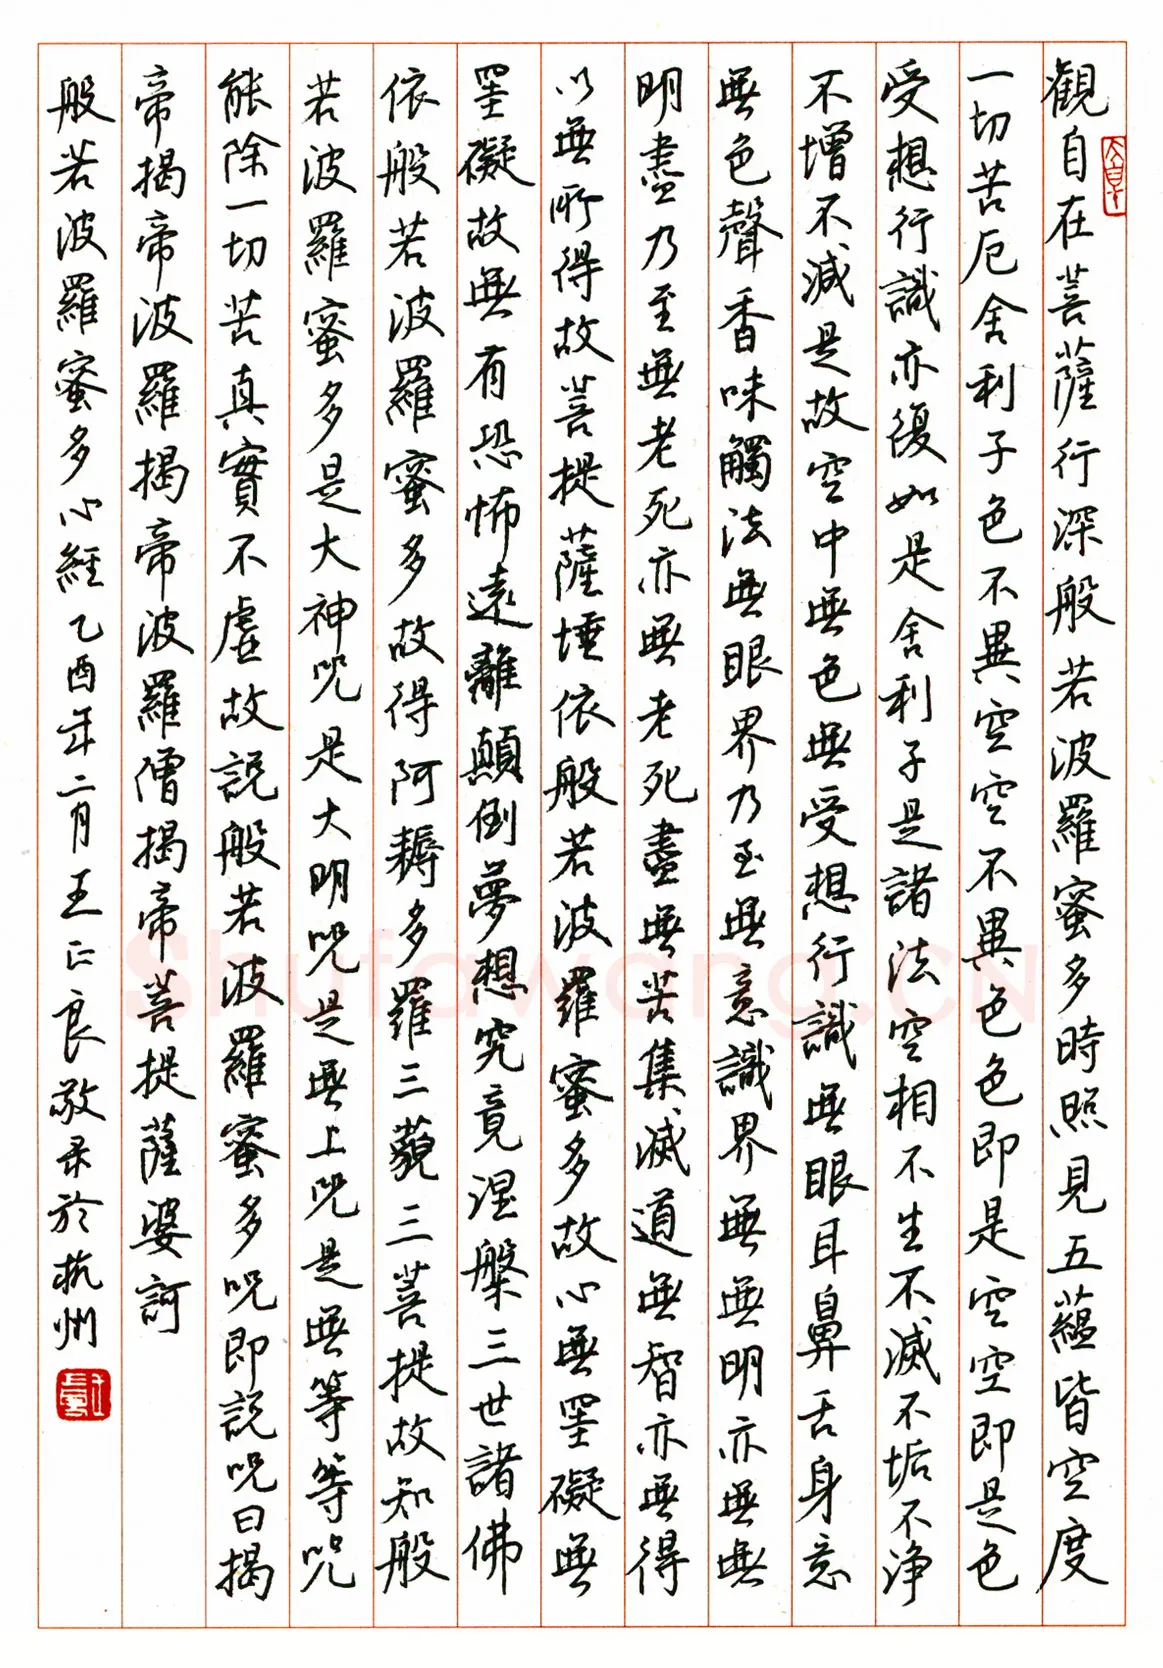 觀自在菩薩行深般若波羅蜜多時照見五蘊皆空度
一切苦厄舍利子色不異空空不異色色即是空空即是色
受想行識亦復如是舍利子是諸法空相不生不滅不垢不淨
不增不減是故空中無色無受想行識無眼耳鼻舌身意
無色聲香味觸法無眼界乃至無意識界無無明亦無無
明盡乃至無老死亦無老死盡無苦集滅道無智亦無得
以無所得故菩提薩埵依般若波羅蜜多故心無罣礙無
罣礙故無有恐怖遠離顛倒夢想究竟涅槃三世諸佛
依般若波羅蜜多故得阿耨多羅三藐三菩提故知般
若波羅蜜多是大神咒是大明咒是無上咒是無等等咒
能除一切苦真實不虛故說般若波羅蜜多咒即說咒曰揭
帝揭帝波羅揭帝波羅僧揭帝菩提薩婆訶
般若波羅蜜多心經乙酉年二月王正良敬录於杭州
Shufawang.CN